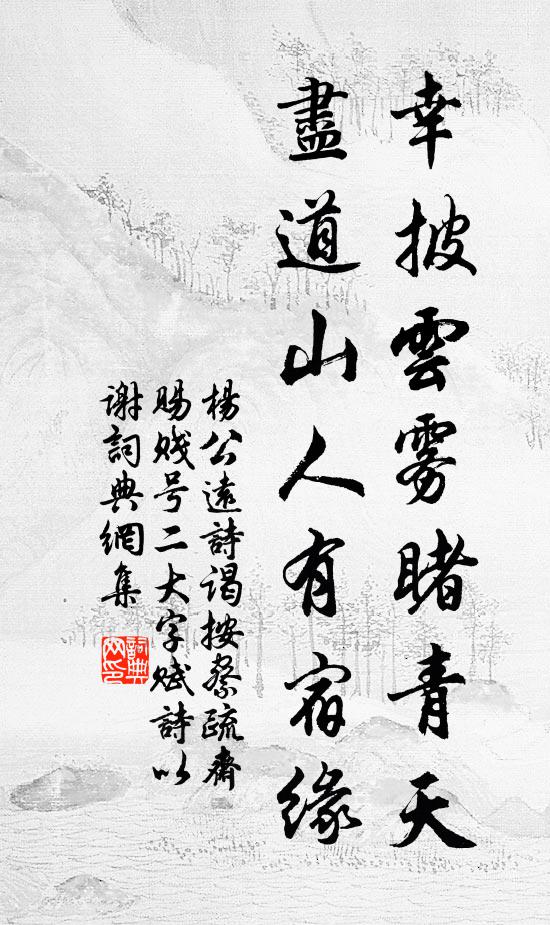 幸披雲雾睹青天
盡道山人有宿緣
楊公遠詩謁按察疏齋
賜賤号二大字賦詩以
谢詞典網集
詞典
網印